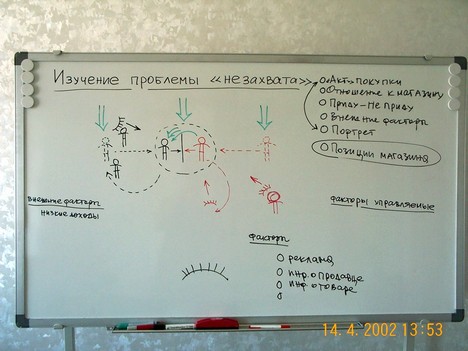 Изучение проблемы «незахвата»
Акт покупки
Отношение к магазину
Приду-Не приду
Внешние факторы
Портрет
Позиции магазина
Внешние факторы
Низкие доходы
факторы управляемые
факторы
реклама
инф. о продавце
инф. о товаре
14. 4. 2002 13:53